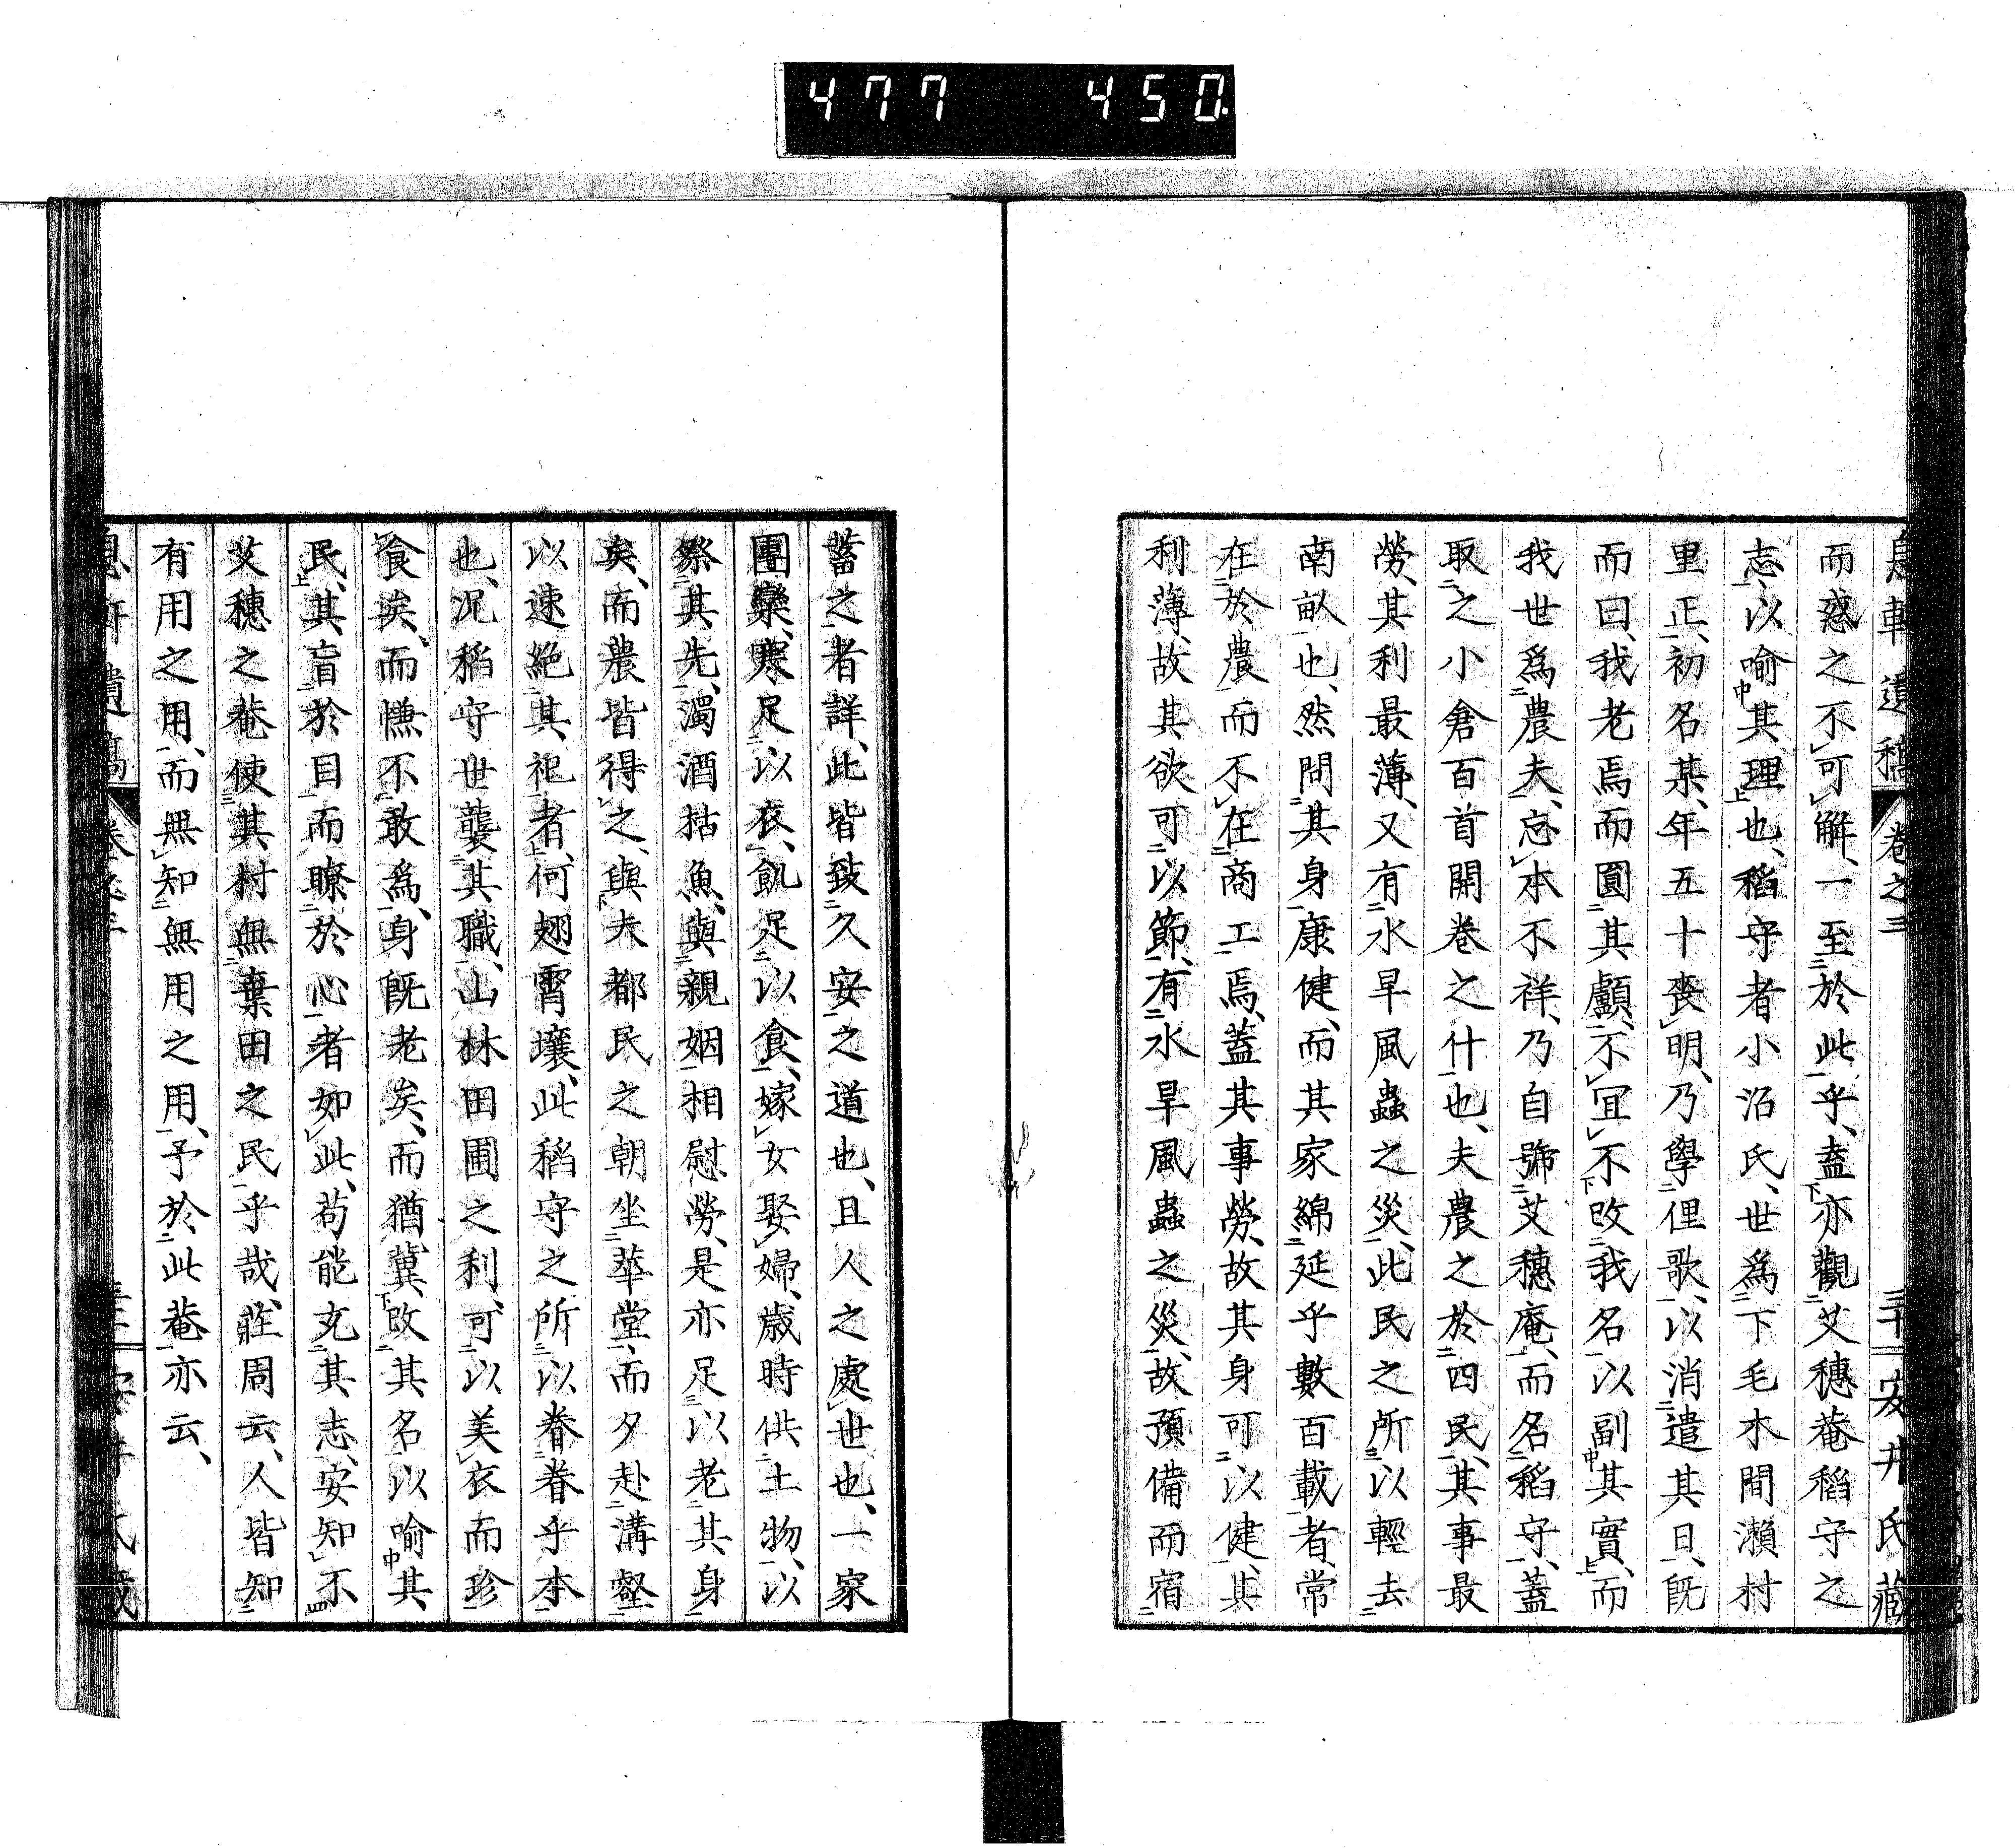 477 450
息軒遺稿 卷之三 三十 安井氏藏
而惑之不可解、一至於此乎、盍亦觀艾穗菴稻守之
志、以喻其理也、稻守者小沼氏、世爲下毛木間瀨村
里正、初名某、年五十喪明、乃學俚歌、以消遣其日、既
而曰、我老焉而圓其顱、不宜不改我名以副其實、而
我世爲農夫、忘本不祥、乃自號艾穗庵、而名稻守、蓋
取之小倉百首開卷之什也、夫農之於四民、其事最
勞、其利最薄、又有水旱風蟲之災、此民之所以輕去
南畝也、然問其身康健、而其家綿延乎數百載者、常
在於農而不在商工焉、蓋其事勞、故其身可以健、其
利薄、故其欲可以節、有水旱風蟲之災、故預備而宿
蓄之者詳、此皆致久安之道也、且人之處世也、一家
團欒、寒足以衣、飢足以食、嫁女娶婦、歲時供土物、以
祭其先、濁酒枯魚、與親姻相慰勞、是亦足以老其身
矣、而農皆得之、與夫都民之朝坐華堂、而夕赴溝壑
以速絕其祀者、何翅霄壤、此稻守之所以眷眷乎本
也、况稻守世襲其職、山林田圃之利、可以美衣而珍
食矣、而慊不敢爲、身既老矣、而猶冀改其名以喻其
民、其盲於目而瞭於心者如此、苟能充其志、安知不
艾穗之菴使其村無棄田之民乎哉、莊周云、人皆知
有用之用、而無知無用之用、予於此菴亦云、
息軒遺稿 卷之三 安井氏藏